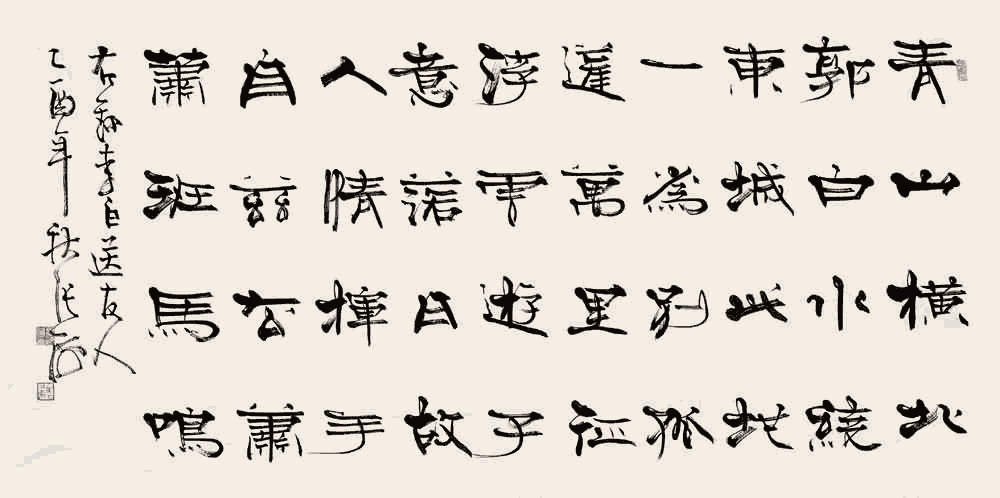 青山橫北
郭白水繞
東城此地
一為別孤
蓬萬里征
浮雲遊子
意落日故
人情揮手
自茲去蕭
蕭班馬鳴
右錄李白送友人
乙酉年秋張